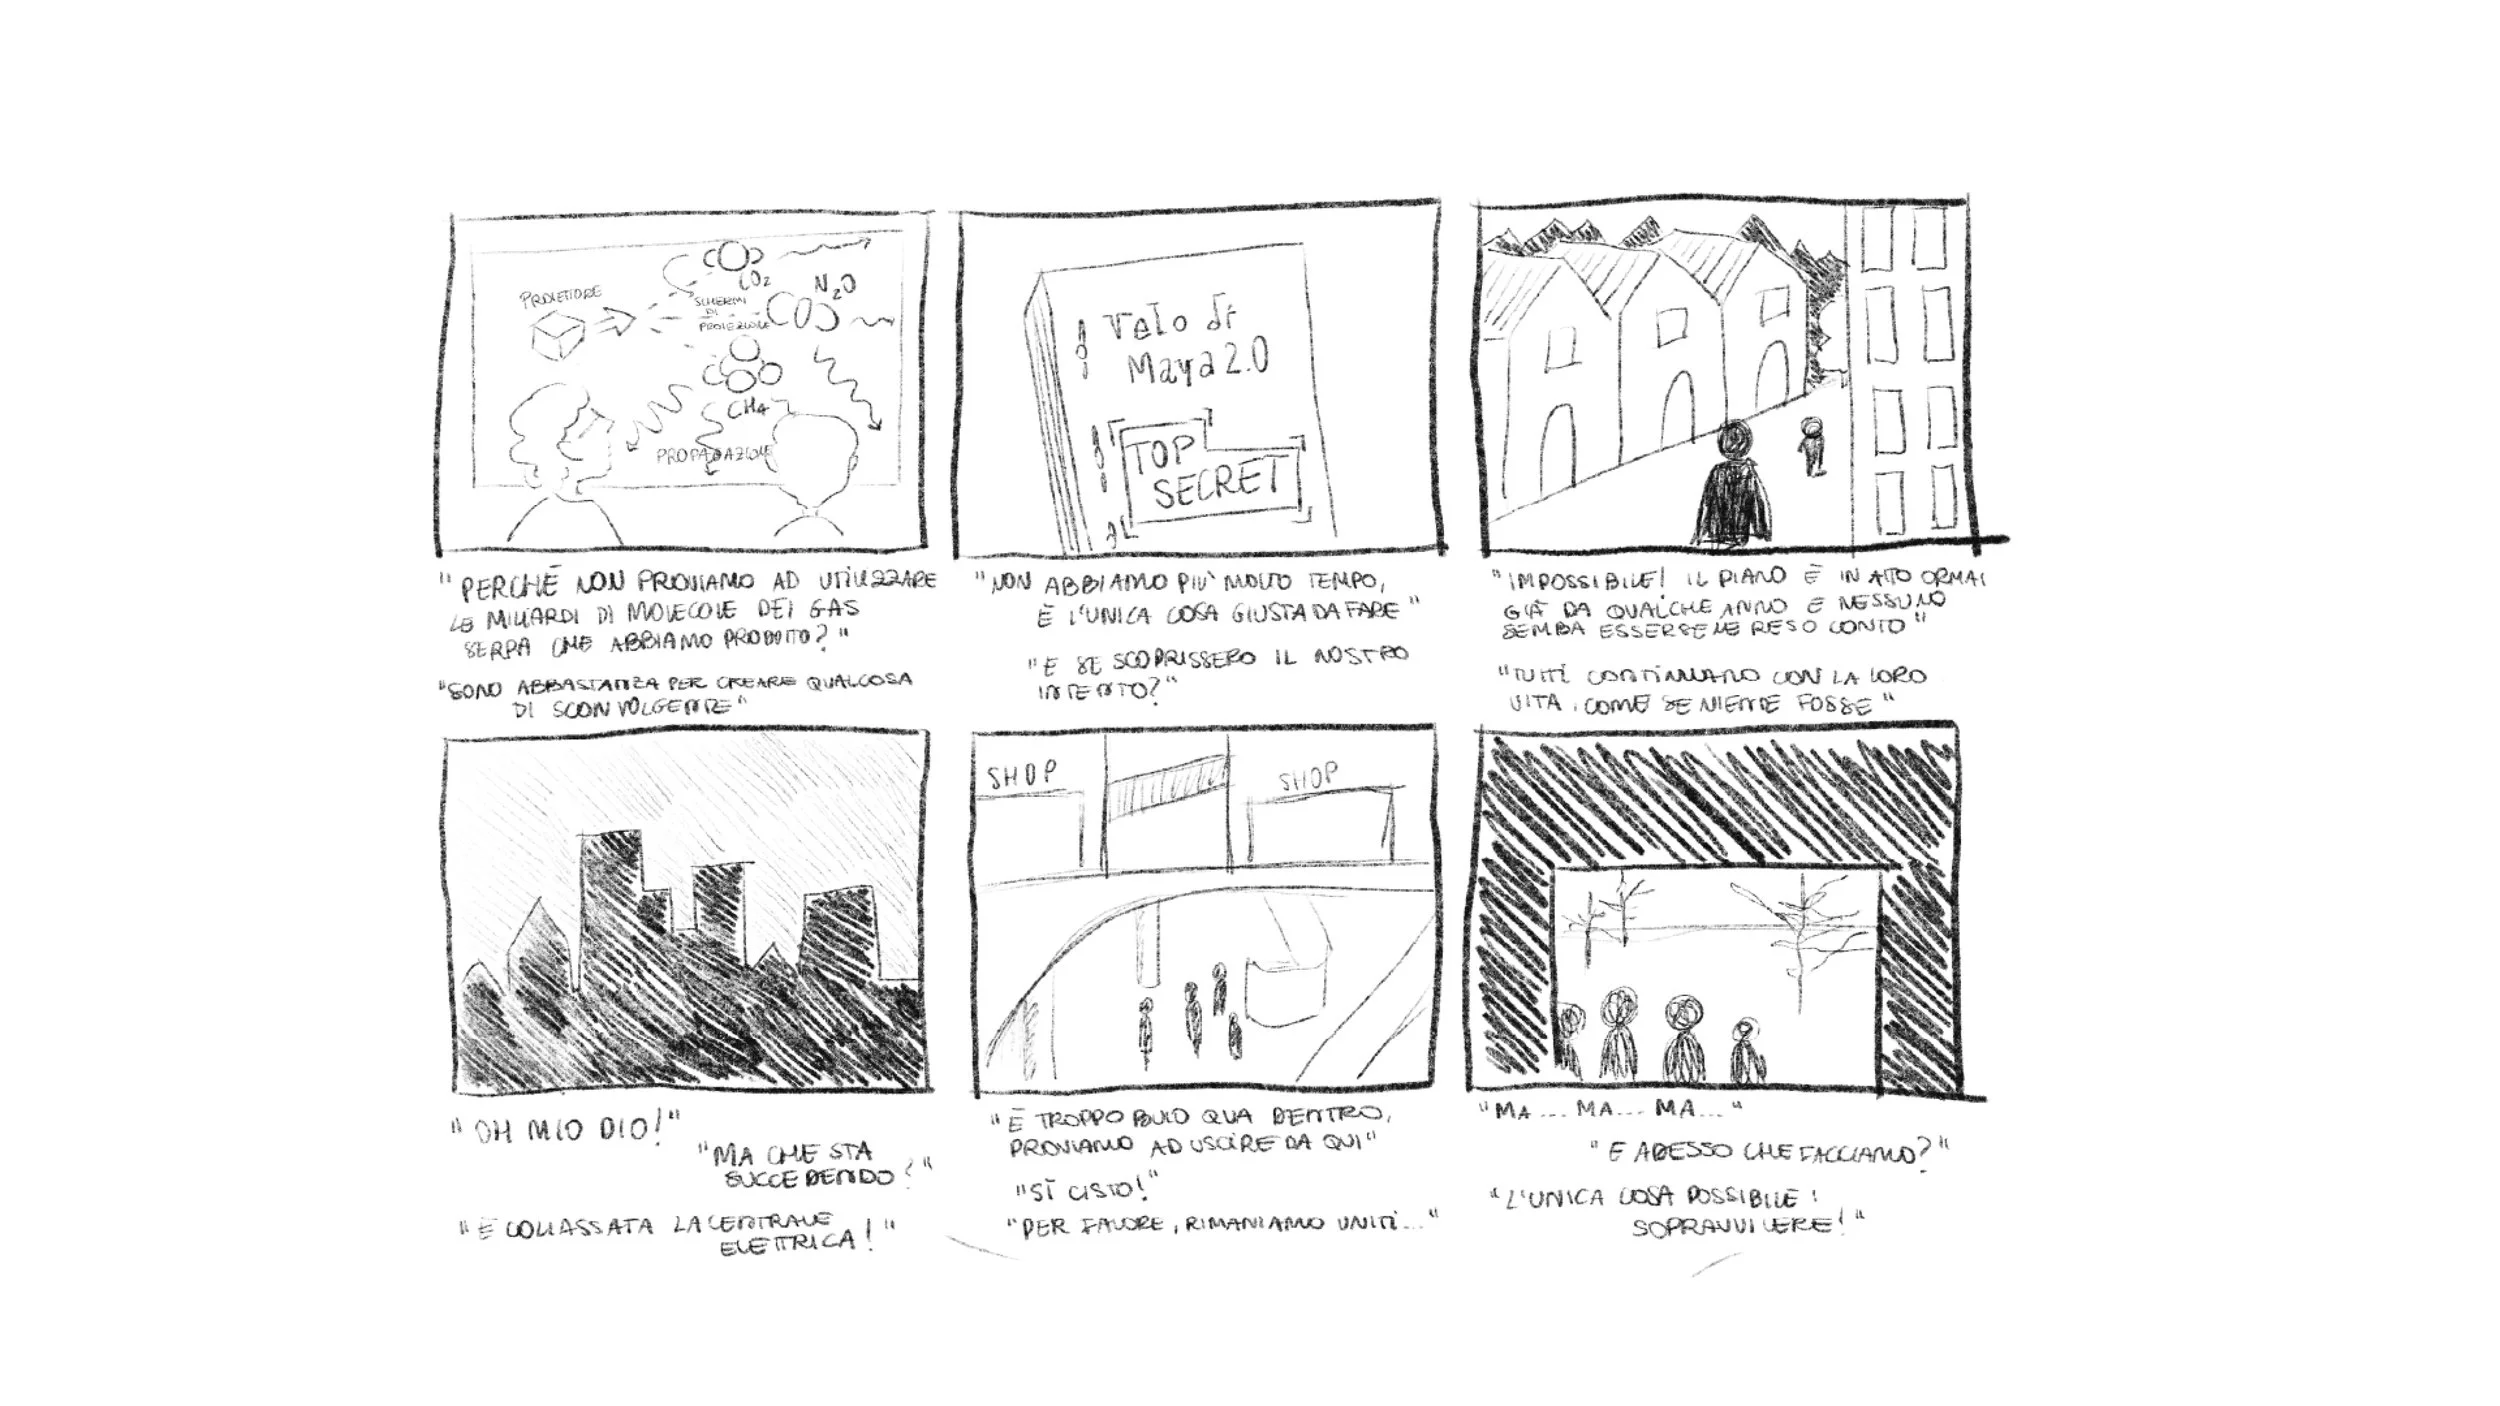 PROIETTORE
CO2
N2O
SCHERMI
DI
PROIEZIONE
CH4
PROPAGAZIONE
"PERCHÉ NON PROVIAMO AD UTILIZZARE
LE MILIARDI DI MOLECOLE DEI GAS
SERRA CHE ABBIAMO PRODOTTO?"
"SONO ABBASTANZA PER CREARE QUALCOSA
DI SCONVOLGENTE"
Velo di
Maya 2.0
TOP
SECRET
"NON ABBIAMO PIÙ MOLTO TEMPO,
È L'UNICA COSA GIUSTA DA FARE"
"E SE SCOPRISSERO IL NOSTRO
INTENTO?"
"IMPOSSIBILE! IL PIANO È IN ATTO ORMAI
GIÀ DA QUALCHE ANNO E NESSUNO
SEMBA ESSERSENE RESO CONTO"
"TUTTI CONTINUANO CON LA LORO
VITA, COME SE NIENTE FOSSE"
"OH MIO DIO!"
"MA CHE STA
SUCCEDENDO?"
"È COLLASSATA LA CENTRALE
ELETTRICA!"
SHOP
SHOP
"È TROPPO BUIO QUA DENTRO,
PROVIAMO AD USCIRE DA QUI"
"SÌ CISTO!"
"PER FAVORE, RIMANIAMO UNITI..."
"MA... MA... MA..."
"E ADESSO CHE FACCIAMO?"
"L'UNICA COSA POSSIBILE:
SOPRAVVIVERE!"